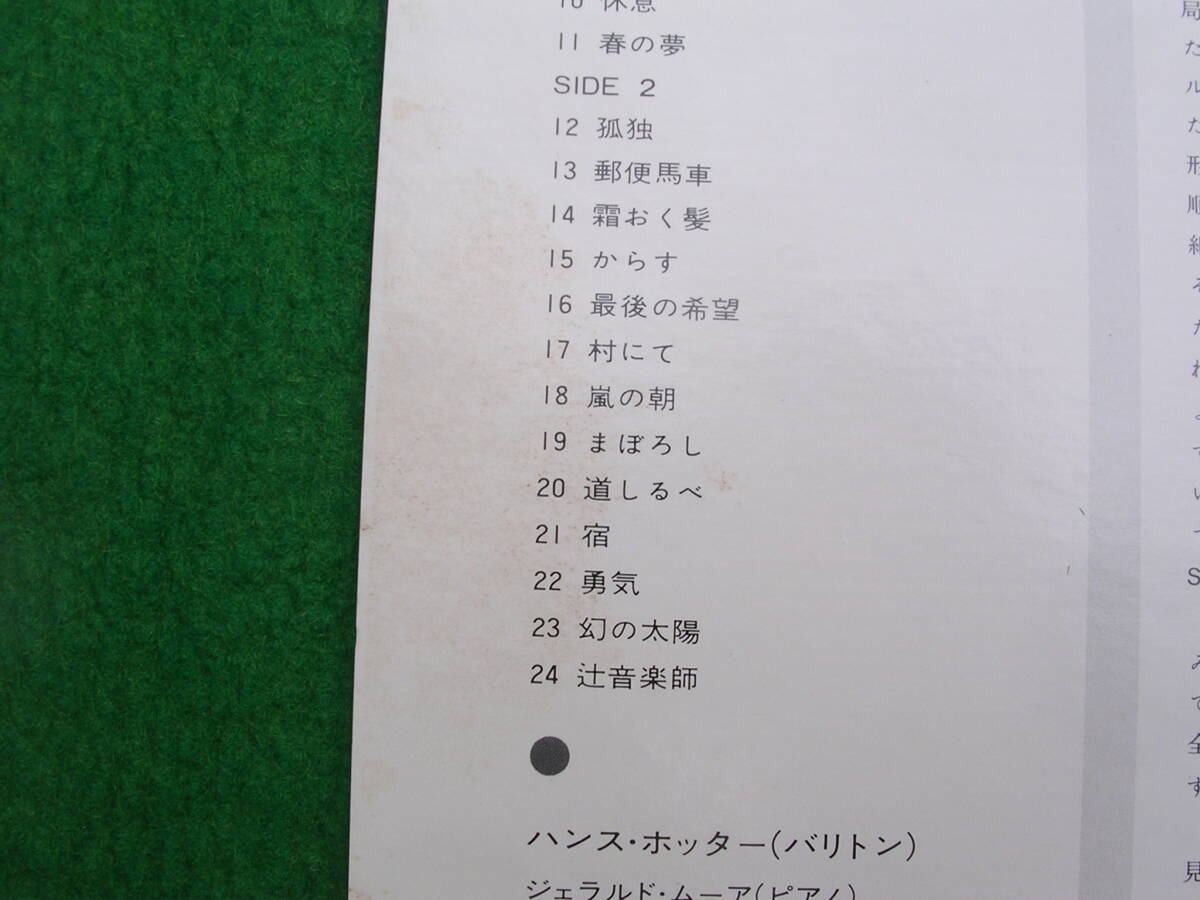 10 休息
11 春の夢
SIDE 2
12 孤独
13 郵便馬車
14 霜おく髪
15 からす
16 最後の希望
17 村にて
18 嵐の朝
19 まぼろし
20 道しるべ
21 宿
22 勇気
23 幻の太陽
24 辻音楽師
ハンス・ホッター(バリトン)
ジェラルド・ムーア(ピアノ)
局
た
ル
た
形
順
て
い
S
み
て
全
す
見